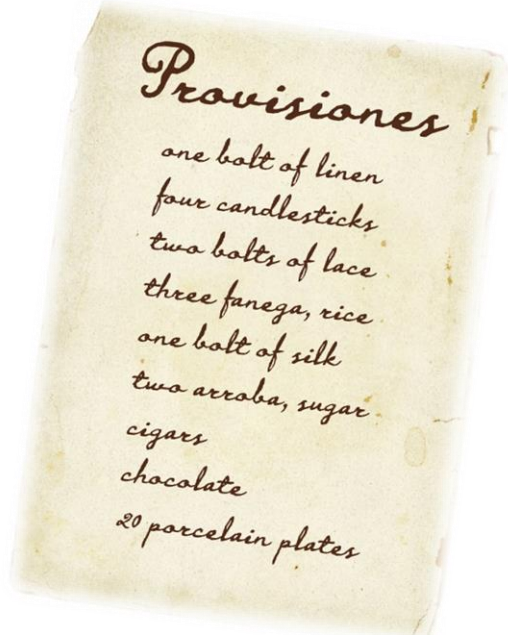 Provisiones
one bolt of linen
four candlesticks
two bolts of lace
three fanega, rice
one bolt of silk
two arroba, sugar
cigars
chocolate
20 porcelain plates